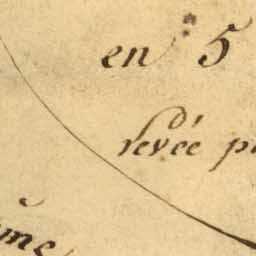 en 5
levée p
me